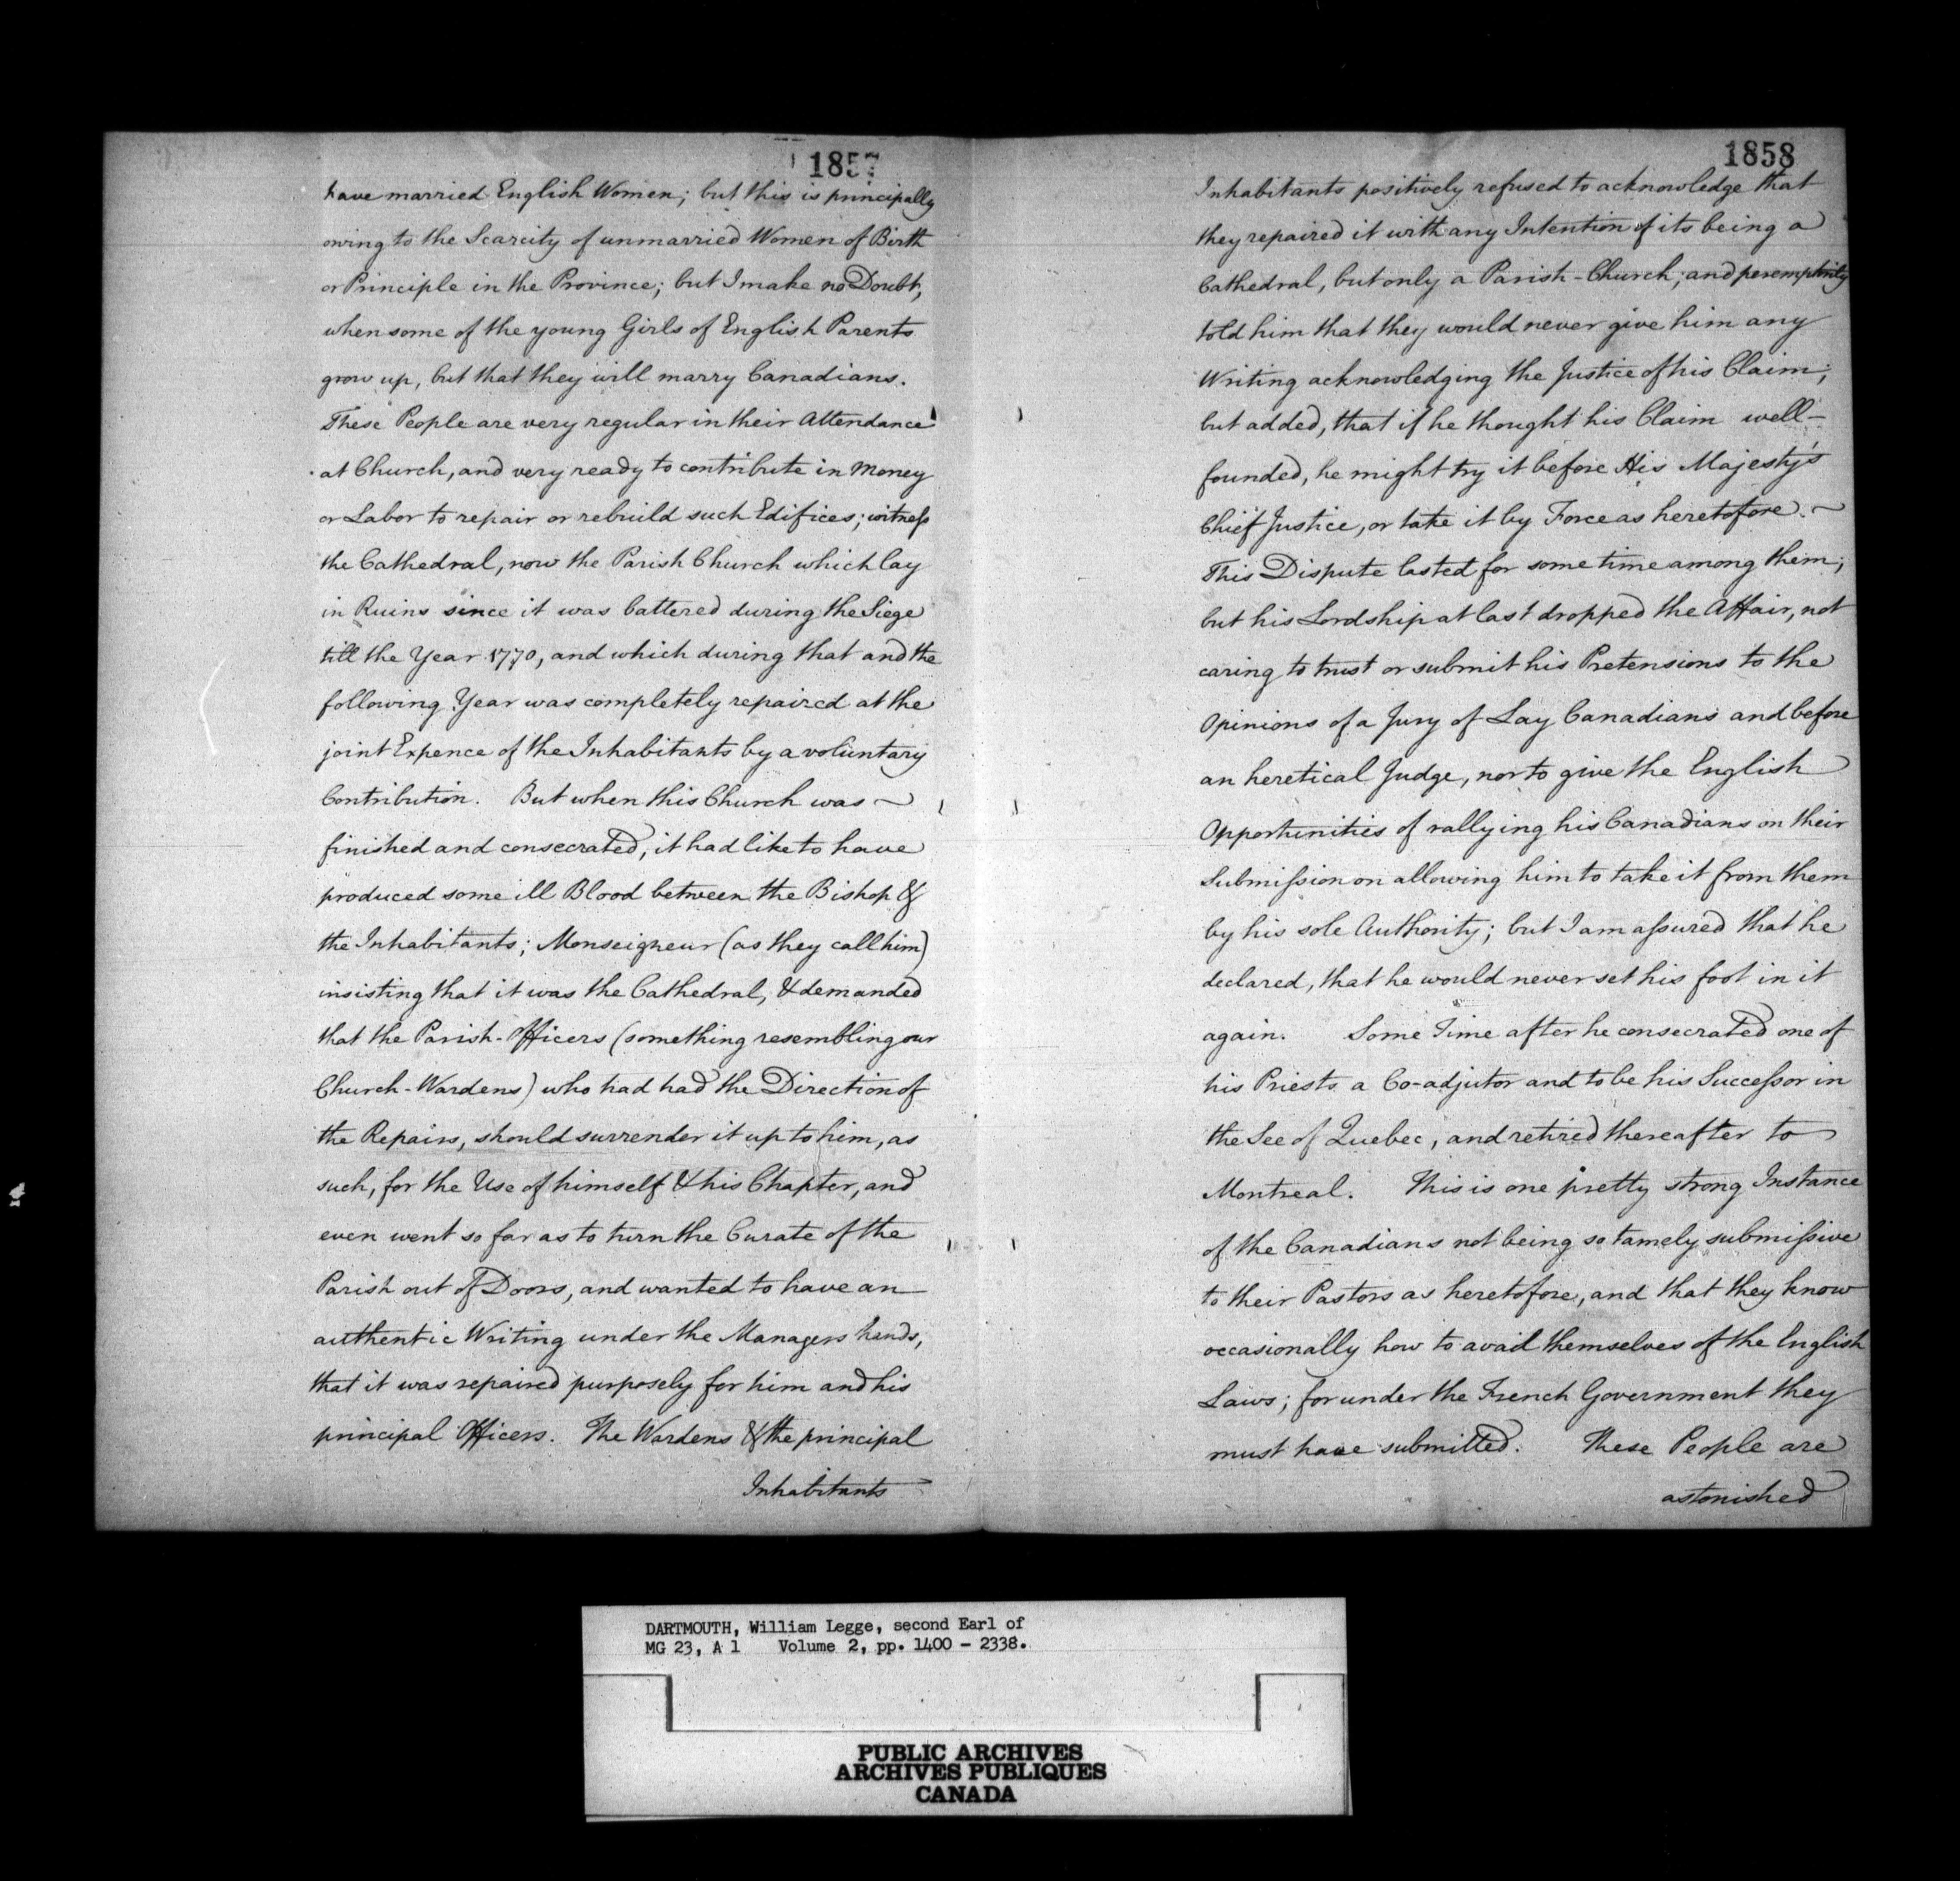 1857
have married English Women; but this is principally
owing to the Scarcity of unmarried Women of Birth
or Principle in the Province; but I make no Doubt,
when some of the young Girls of English Parents
grow up, but that they will marry Canadians.
These People are very regular in their Attendance
at Church, and very ready to contribute in Money
or Labor to repair or rebuild such Edifices; witness
the Cathedral, now the Parish Church which lay
in Ruins since it was battered during the Siege
till the Year 1770, and which during that and the
following Year was completely repaired at the
joint Expence of the Inhabitants by a voluntary
Contribution. But when this Church was ~
finished and consecrated, it had like to have
produced some ill Blood between the Bishop &
the Inhabitants; Monseigneur (as they call him)
insisting that it was the Cathedral, & demanded
that the Parish-Officers (something resembling our
Church-Wardens) who had had the Direction of
the Repairs, should surrender it up to him, as
such, for the Use of himself & his Chapter, and
even went so far as to turn the Curate of the
Parish out of Doors, and wanted to have an
authentic Writing under the Managers hands,
that it was repaired purposely for him and his
principal Officers. The Wardens & the principal
Inhabitants
1858
Inhabitants positively refused to acknowledge that
they repaired it with any Intention of its being a
Cathedral, but only a Parish-Church; and peremptorily
told him that they would never give him any
Writing acknowledging the Justice of his Claim;
but added, that if he thought his Claim well-
founded, he might try it before His Majesty's
Chief Justice, or take it by Force as heretofore. ~
This Dispute lasted for some time among them;
but his Lordship at last dropped the Affair, not
caring to trust or submit his Pretensions to the
Opinions of a Jury of Lay Canadians and before
an heretical Judge, nor to give the English
Opportunities of rallying his Canadians on their
Submission on allowing him to take it from them
by his sole Authority; but I am assured that he
declared, that he would never set his foot in it
again. Some Time after he consecrated one of
his Priests a Co-adjutor and to be his Successor in
the See of Quebec, and retired thereafter to
Montreal. This is one pretty strong Instance
of the Canadians not being so tamely submissive
to their Pastors as heretofore, and that they know
occasionally how to avail themselves of the English
Laws; for under the French Government they
must have submitted. These People are
astonished
DARTMOUTH, William Legge, second Earl of
MG 23, A 1 Volume 2, pp. 1400 - 2338.
PUBLIC ARCHIVES
ARCHIVES PUBLIQUES
CANADA